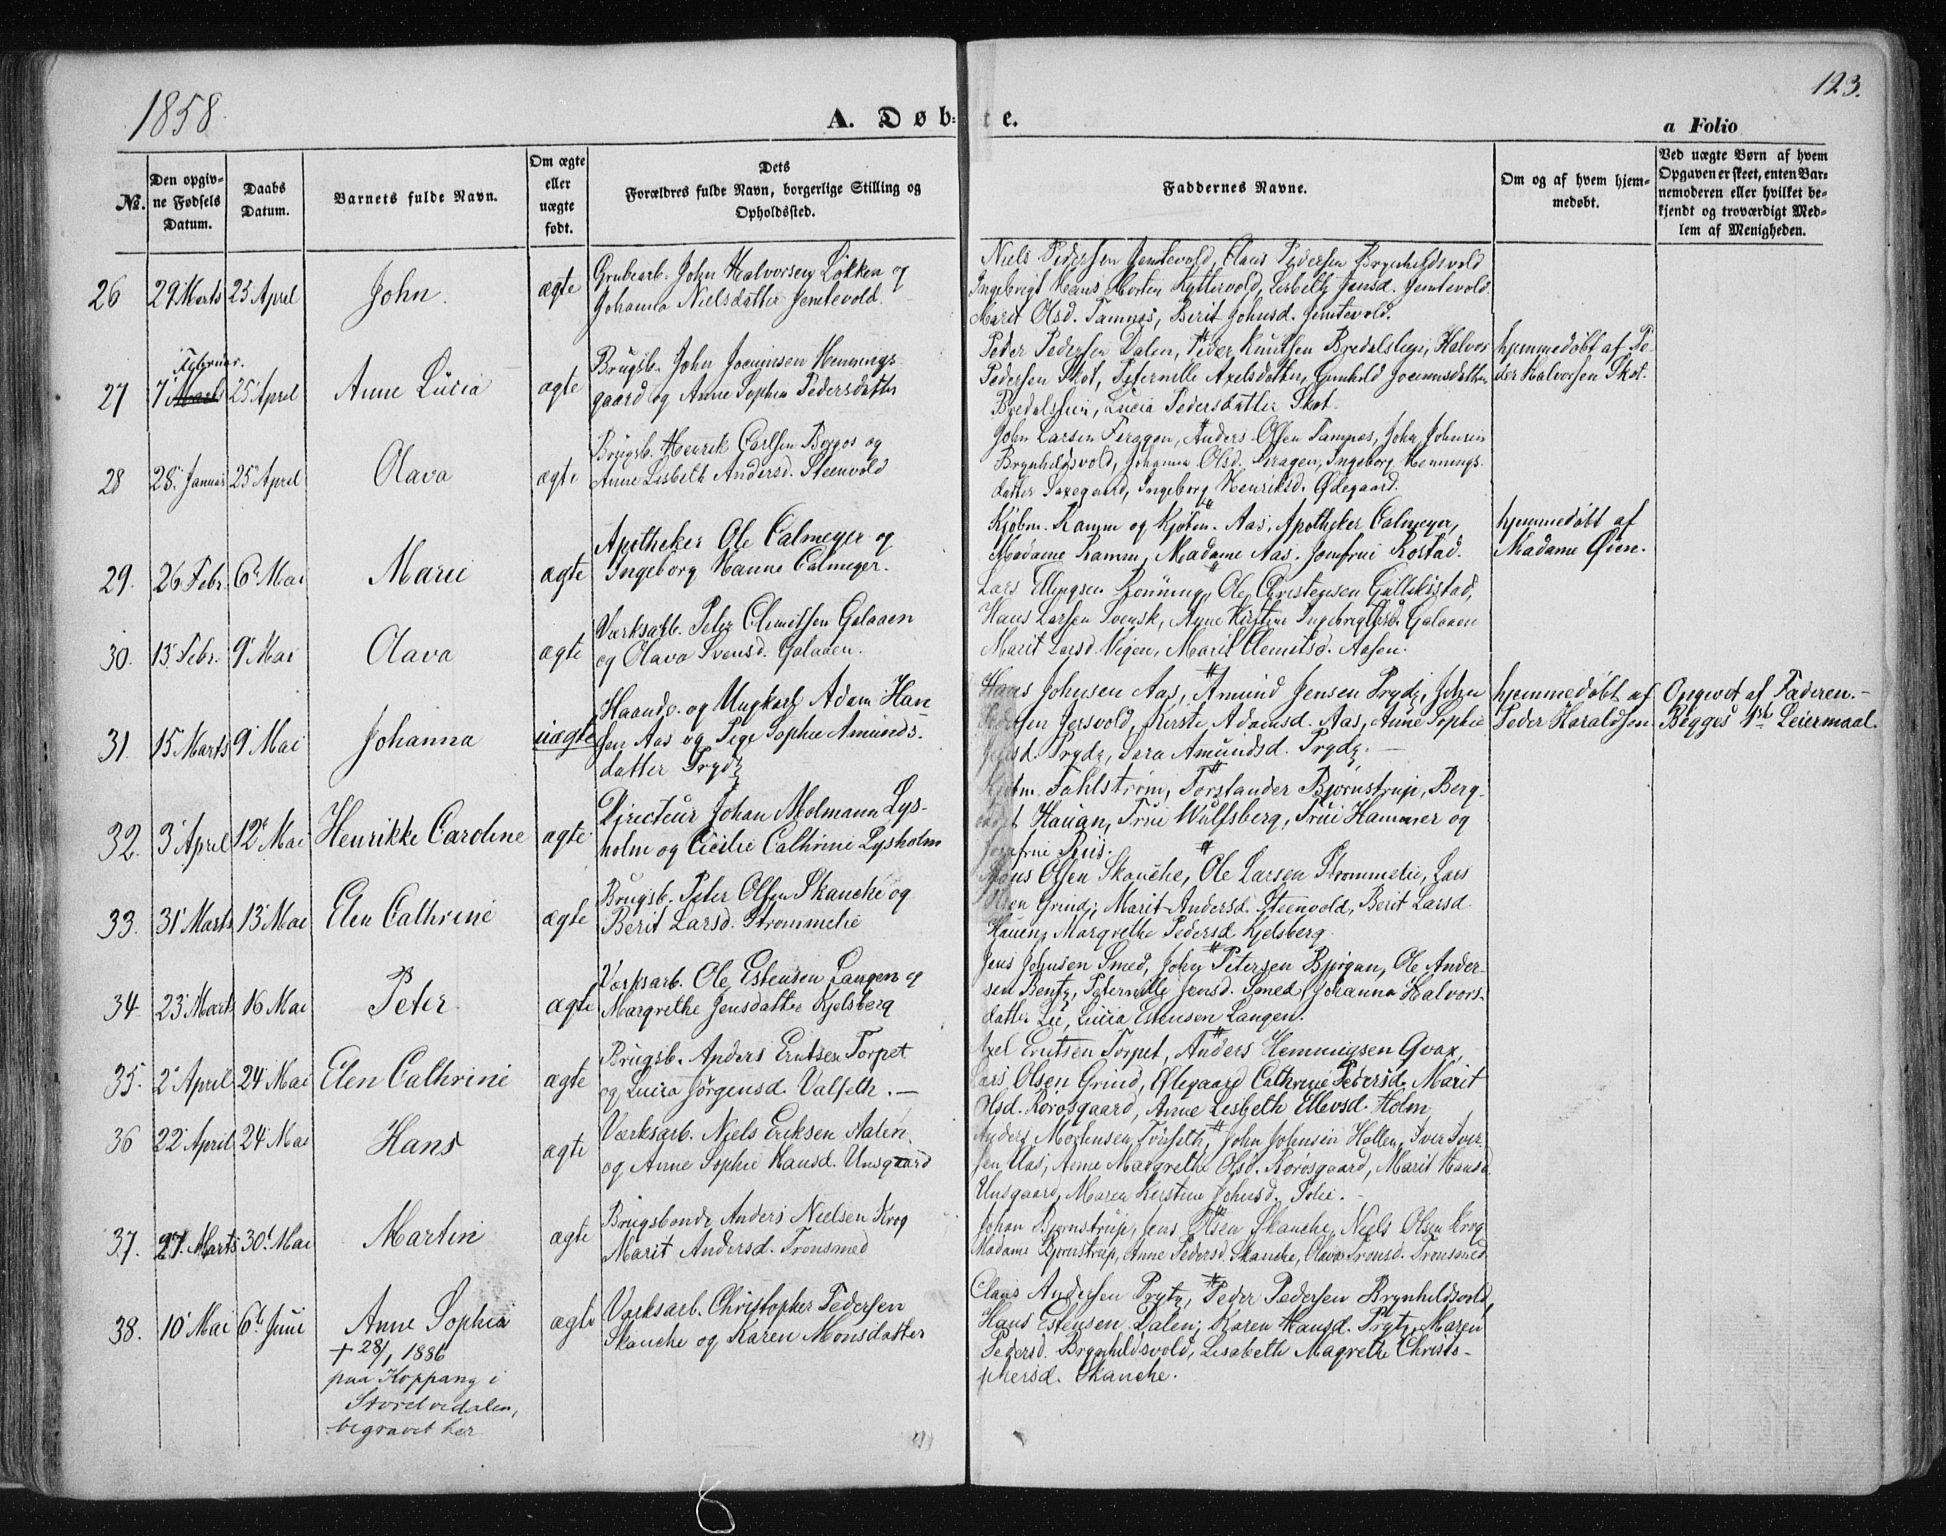 1858.
123.
A. Døb=
te.
a Folio
No.
Den opgiv-
ne Fødsels
Datum.
Daabs
Datum.
Barnets fulde Navn.
Om ægte
eller
uægte
født.
Dets
Forældres fulde Navn, borgerlige Stilling og
Opholdssted.
Faddernes Navne.
Om og af hvem hjem-
medøbt.
Ved uægte Børn af hvem
Opgaven er skeet, enten Bar-
nemoderen eller hvilket be-
kjendt og troværdigt Med-
lem af Menigheden.
26 29 Marts 25 April John. ægte
Grubearb. John Halvorsen Løkken og
Johanna Nielsdatter Jemtevold.
Niels Pedersen Jemtevold, Claus Pedersen Brynhildsvold
Ingebrigt Hans Morten Kyttervold, Lisbeth Jansd. Jemtevold
Marit Olsd. Tamnæs, Berit Johnsd. Jemtevold.
Februar.
27 7 Marts 25 April Anne Lucia ægte
Brugsb. John Jocumsen Hennings-
gaard og Anne Sophia Pedersdatter
Peder Pedersen Dalen, Peder Knutsen Bredalslien, Halvor
Pedersen Skot, Peternille Axelsdatter, Gunhild Jocumsdatter
Bredalslien, Lucia Pedersdatter Skot.
hjemmedøbt af Pe-
der Halvorsen Skot.
28 28 Januar 25 April Olava ægte
Brugsb. Henrik Carlsen Borgos og
Anne Lisbeth Andersd. Steenvold
John Larsen Feragen, Anders Olsen Tamnes, John Johnsen
Brynhildsvold, Johanna Olsd. Feragen, Ingeborg Hennings-
datter Saxegaard, Ingeborg Henriksd. Ødegaard.
29. 26 Febr. 6 Mai Marie ægte
Apotheker Ole Calmeyer og
Ingeborg Hanne Calmeyer.
Kjøbm. Ramm og Kjøbm. Aas, Apotheker Calmeyer,
Madame Ramm, Madame Aas. Jomfrue Rostad.
hjemmedøbt af
Madame Øien.
30. 13 Febr. 9 Mai Olava ægte
Værksarb. Peter Clemitsen Galaaen
og Olava Svensd. Galaaen.
Lars Ellingsen Rønning, Ole Christensen Gullikstad,
Hans Larsen Svensk, Anne Kirstine Ingebrigtsd. Galaaen
Marit Larsd. Vigen, Marit Clemitsd. Aasen.
31. 15 Marts 9 Mai Johanna uægte
Haandv. og Ungkarl Adam Han-
sen Aas og Pige Sophie Amunds-
datter Prydz
Hans Johnsen Aas, Amund Jensen Prydz, John
Pedersen Jersvold, Kirste Adamsd. Aas, Anne Sophie
Jensd. Prydz, Sara Amundsd. Prydz. —
hjemmedøbt af
Peder Haraldsen
Opgivet af Faderen. —
Begges 1ste Leiermaal.
32. 3 April 12 Mai Henrikke Caroline ægte
Directeur Johan Molmann Lys-
holm og Cicilie Cathrine Lysholm
Kjøbm. Fahlstrøm, Forstander Bjørnstrup, Berg-
Hauan, Frue Wulfsberg, Frue Hammer og
Jomfrue
33. 31 Marts 13 Mai Elen Cathrine ægte
Brugsb. Peter Olsen Skanche og
Berit Larsd. Strømmelie
Olsen Skanche, Ole Larsen Strømmelie, Lars
Olsen Grind, Marit Andersd. Steenvold, Berit Larsd.
Hauen, Margrethe Pedersd. Kjelsberg.
34 23 Marts 16 Mai Peter ægte
Værksarb. Ole Estensen Langen og
Margrethe Jensdatter Kjelsberg
Jens Johnsen Smed, John Petersen Bjørgan, Ole Ander-
sen Bentz, Peternille Jensd. Smed, Johanna Halvors-
datter Lie, Lucia Estensen Langen.
35. 2 April 24 Mai Elen Cathrine ægte
Brugsb. Anders Erntsen Torpet
og Lucia Jørgensd. Valseth. —
Axel Erntsen Torpet, Anders Hemmingsen Qvax,
Lars Olsen Grind, Ødegaard Cathrine Pedersd. Marit
Olsd. Rørosgaard, Anne Lisbeth Ellevsd. Holm.
36 22 April 24 Mai Hans ægte
Værksarb. Niels Eriksen Aalen
og Anne Sophie Hansd. Unsgaard
Anders Mortensen Tønseth, John Johnsen Hollen, Iver Iver-
sen Aas, Anne Margrethe Olsd. Rørosgaard, Marit Hansd.
Unsgaard, Maren Kirstine Johnsd. Solie. —
37. 27 Marts 30 Mai Martin ægte
Brugsbonde Anders Nielsen Krog
Marit Andersd. Tronsmed
Johan Bjørnstrup, Jens Olsen Skanche, Niels Olsen Krog
Madame Bjørnstrup, Anne Pedersd. Skanche, Olava Tronsd. Tronsmed
38. 10 Mai 6te Juni Anne Sophia ægte
Værksarb. Christopher Pedersen
Skanche og Karen Monsdatter
Claus Andersen Prytz, Peder Pedersen Brynhildsvold,
Hans Estensen Dalen, Karen Hansd. Prytz, Maren
Pedersd. Brynhildsvold, Lisabeth Magrethe Christo-
phersd. Skanche.
+ 28/1 1886
paa Koppang i
Storelvedalen,
begravet her
8